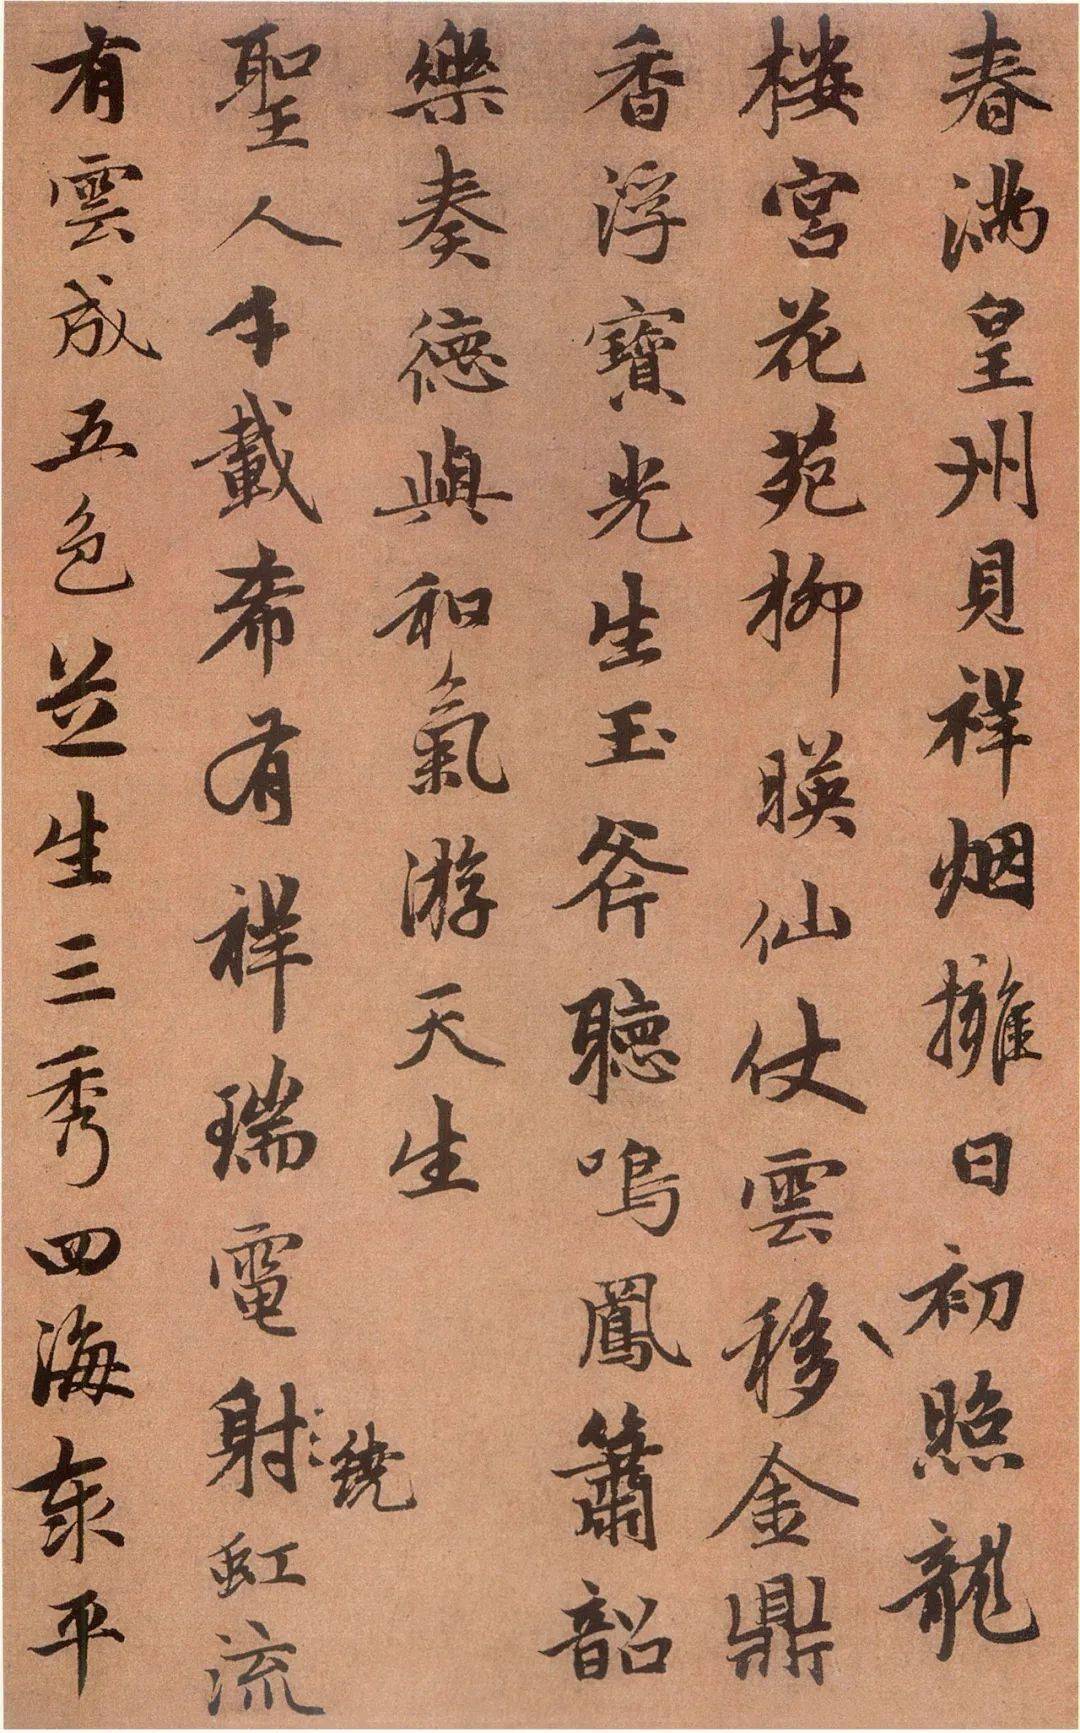 春满皇州見祥烟擁日初照龍
楼宮花苑柳暎仙仗雲移金鼎
香浮寶光生玉斧聽鳴鳳簫韶
樂奏德與和氣游天生
聖人千載希有祥瑞電射虹流
繞
有雲成五色芝生三秀四海泰平